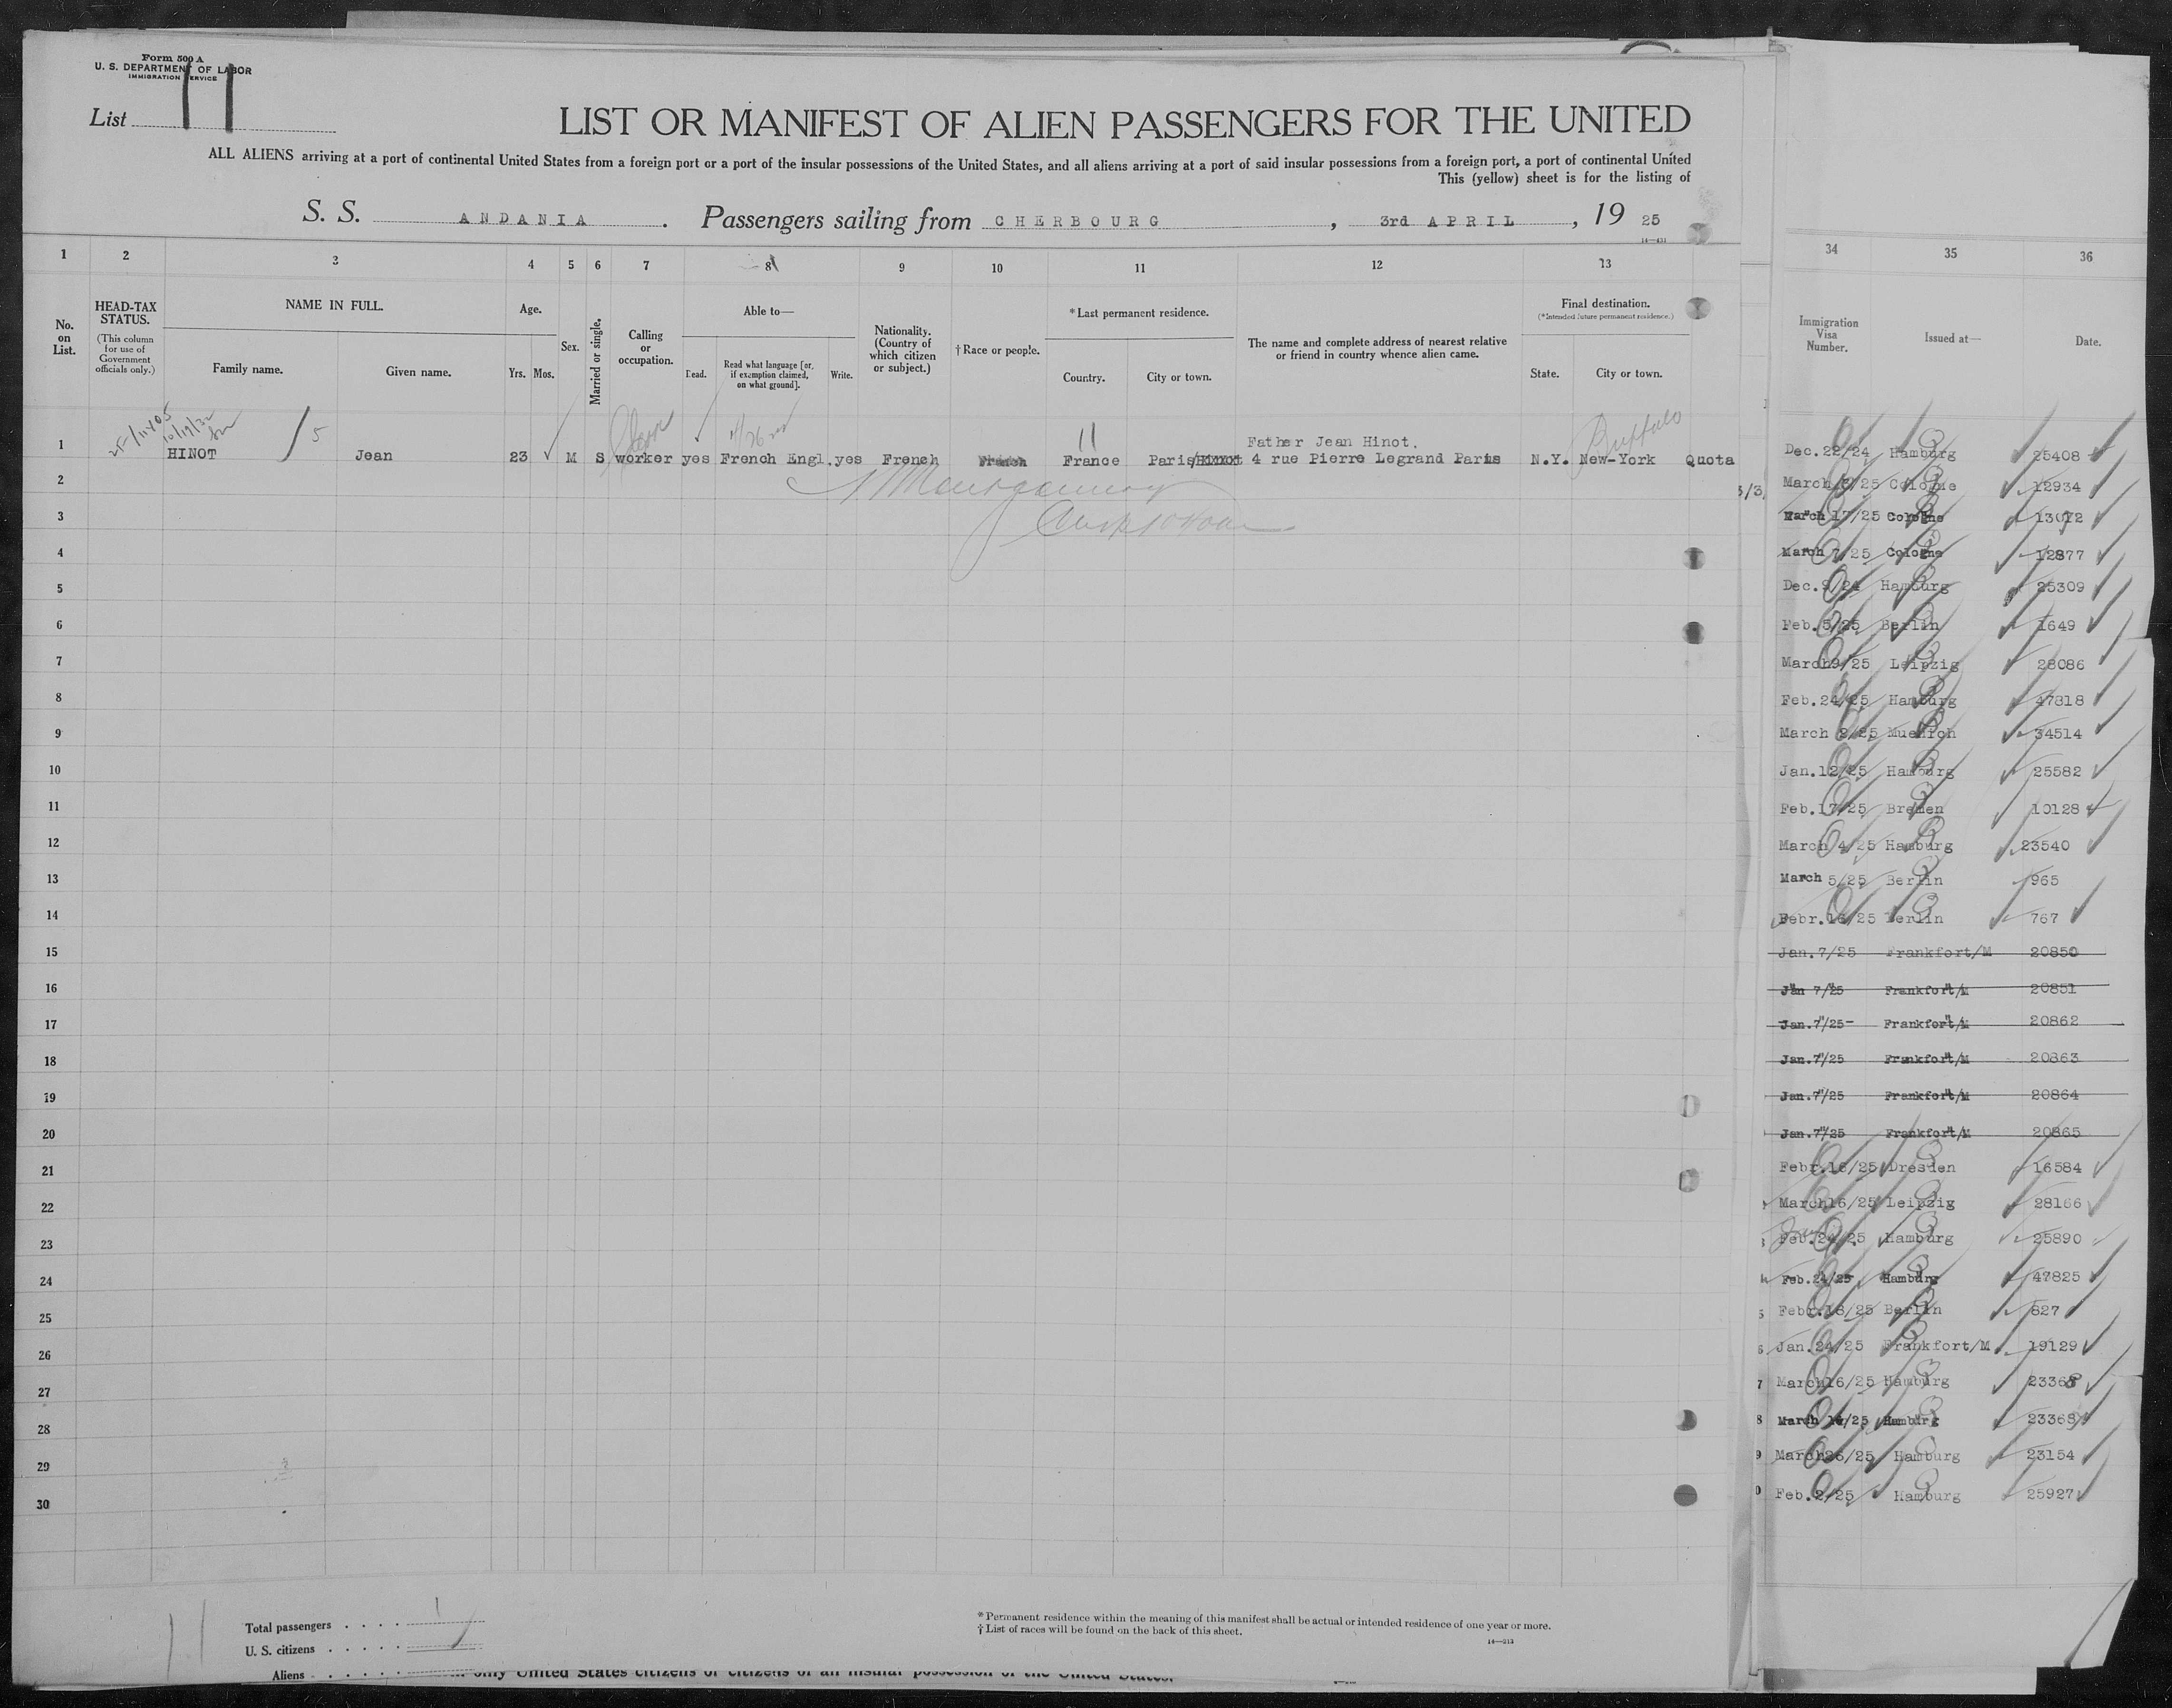 Form 500 A
U. S. DEPARTMENT OF LABOR
IMMIGRATION SERVICE
List 11
LIST OR MANIFEST OF ALIEN PASSENGERS FOR THE UNITED
ALL ALIENS arriving at a port of continental United States from a foreign port or a port of the insular possessions of the United States, and all aliens arriving at a port of said insular possessions from a foreign port, a port of continental United
This (yellow) sheet is for the listing of
S. S. ANDANIA. Passengers sailing from CHERBOURG, 3rd APRIL, 19 25
14—431
1 2 3 4 5 6 7 8 9 10 11 12 13
No. on List.
HEAD-TAX STATUS.
(This column for use of Government officials only.)
NAME IN FULL.
Family name.
Given name.
Age.
Yrs. Mos.
Sex.
Married or single.
Calling or occupation.
Able to—
Read.
Read what language [or, if exemption claimed, on what ground].
Write.
Nationality. (Country of which citizen or subject.)
†Race or people.
*Last permanent residence.
Country.
City or town.
The name and complete address of nearest relative or friend in country whence alien came.
Final destination.
(*Intended future permanent residence.)
State.
City or town.
10/19/32
5
11
Buffalo
Father Jean Hinot.
1 HINOT Jean 23 M S worker yes French Engl. yes French French France Paris 4 rue Pierre Legrand Paris N.Y. New-York Quota
2
3
4
5
6
7
8
9
10
11
12
13
14
15
16
17
18
19
20
21
22
23
24
25
26
27
28
29
30
Total passengers . . . . 1
U. S. citizens . . . . .
Aliens . . . . . .
11
*Permanent residence within the meaning of this manifest shall be actual or intended residence of one year or more.
†List of races will be found on the back of this sheet.
14—213
only United States citizens or citizens of an insular possession of the United States.
34 35 36
Immigration Visa Number.
Issued at—
Date.
Dec.22/24 Hamburg 25408
March 3/25 Cologne 12934
March 17/25 Cologne 13072
March 7/25 Cologne 12877
Dec.9/24 Hamburg 25309
Feb.5/25 Berlin 1649
March9/25 Leipzig 28086
Feb.24/25 Hamburg 47818
March 2/25 Muenich 34514
Jan.12/25 Hamburg 25582
Feb.17/25 Bremen 10128
March 4/25 Hamburg 23540
March 5/25 Berlin 965
Febr.16/25 Berlin 767
Jan.7/25 Frankfort/M 20850
Jan 7/25 Frankfort/M 20851
Jan.7/25 Frankfort/M 20862
Jan.7/25 Frankfort/M 20863
Jan.7/25 Frankfort/M 20864
Jan.7/25 Frankfort/M 20865
Febr.16/25 Dresden 16584
March16/25 Leipzig 28166
Feb.24/25 Hamburg 25890
Feb.24/25 Hamburg 47825
Febr.18/25 Berlin 827
Jan.24/25 Frankfort/M 19129
March16/25 Hamburg 23368
March 14/25 Hamburg 23369
March26/25 Hamburg 23154
Feb.2/25 Hamburg 25927